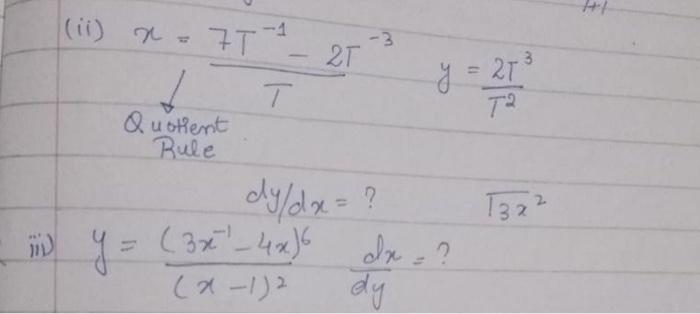 (ii) x = (7T⁻¹ - 2T⁻³)/T y = 2T³/T²
Quotient
Rule
dy/dx = ?
iii) y = (3x⁻¹ - 4x)⁶/(x - 1)² dx/dy = ?